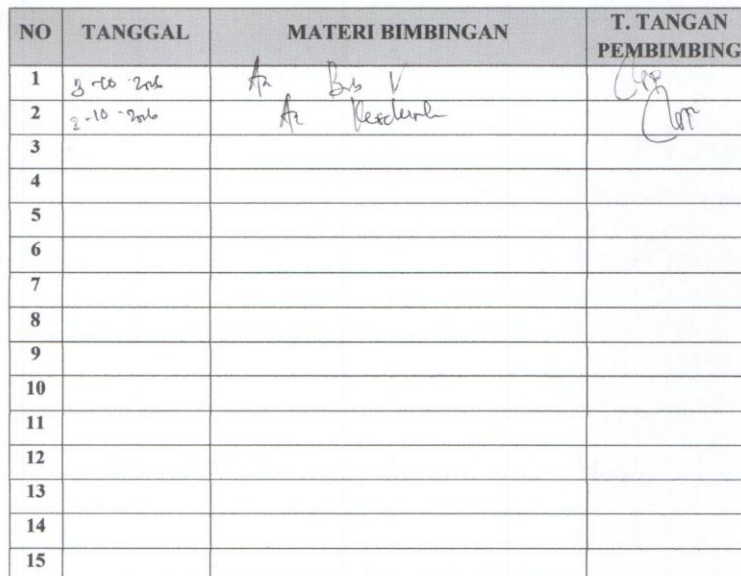 NO TANGGAL MATERI BIMBINGAN T. TANGAN PEMBIMBING
1 3-10-2016 Az Bab V
2 2-10-2016 Az
3
4
5
6
7
8
9
10
11
12
13
14
15